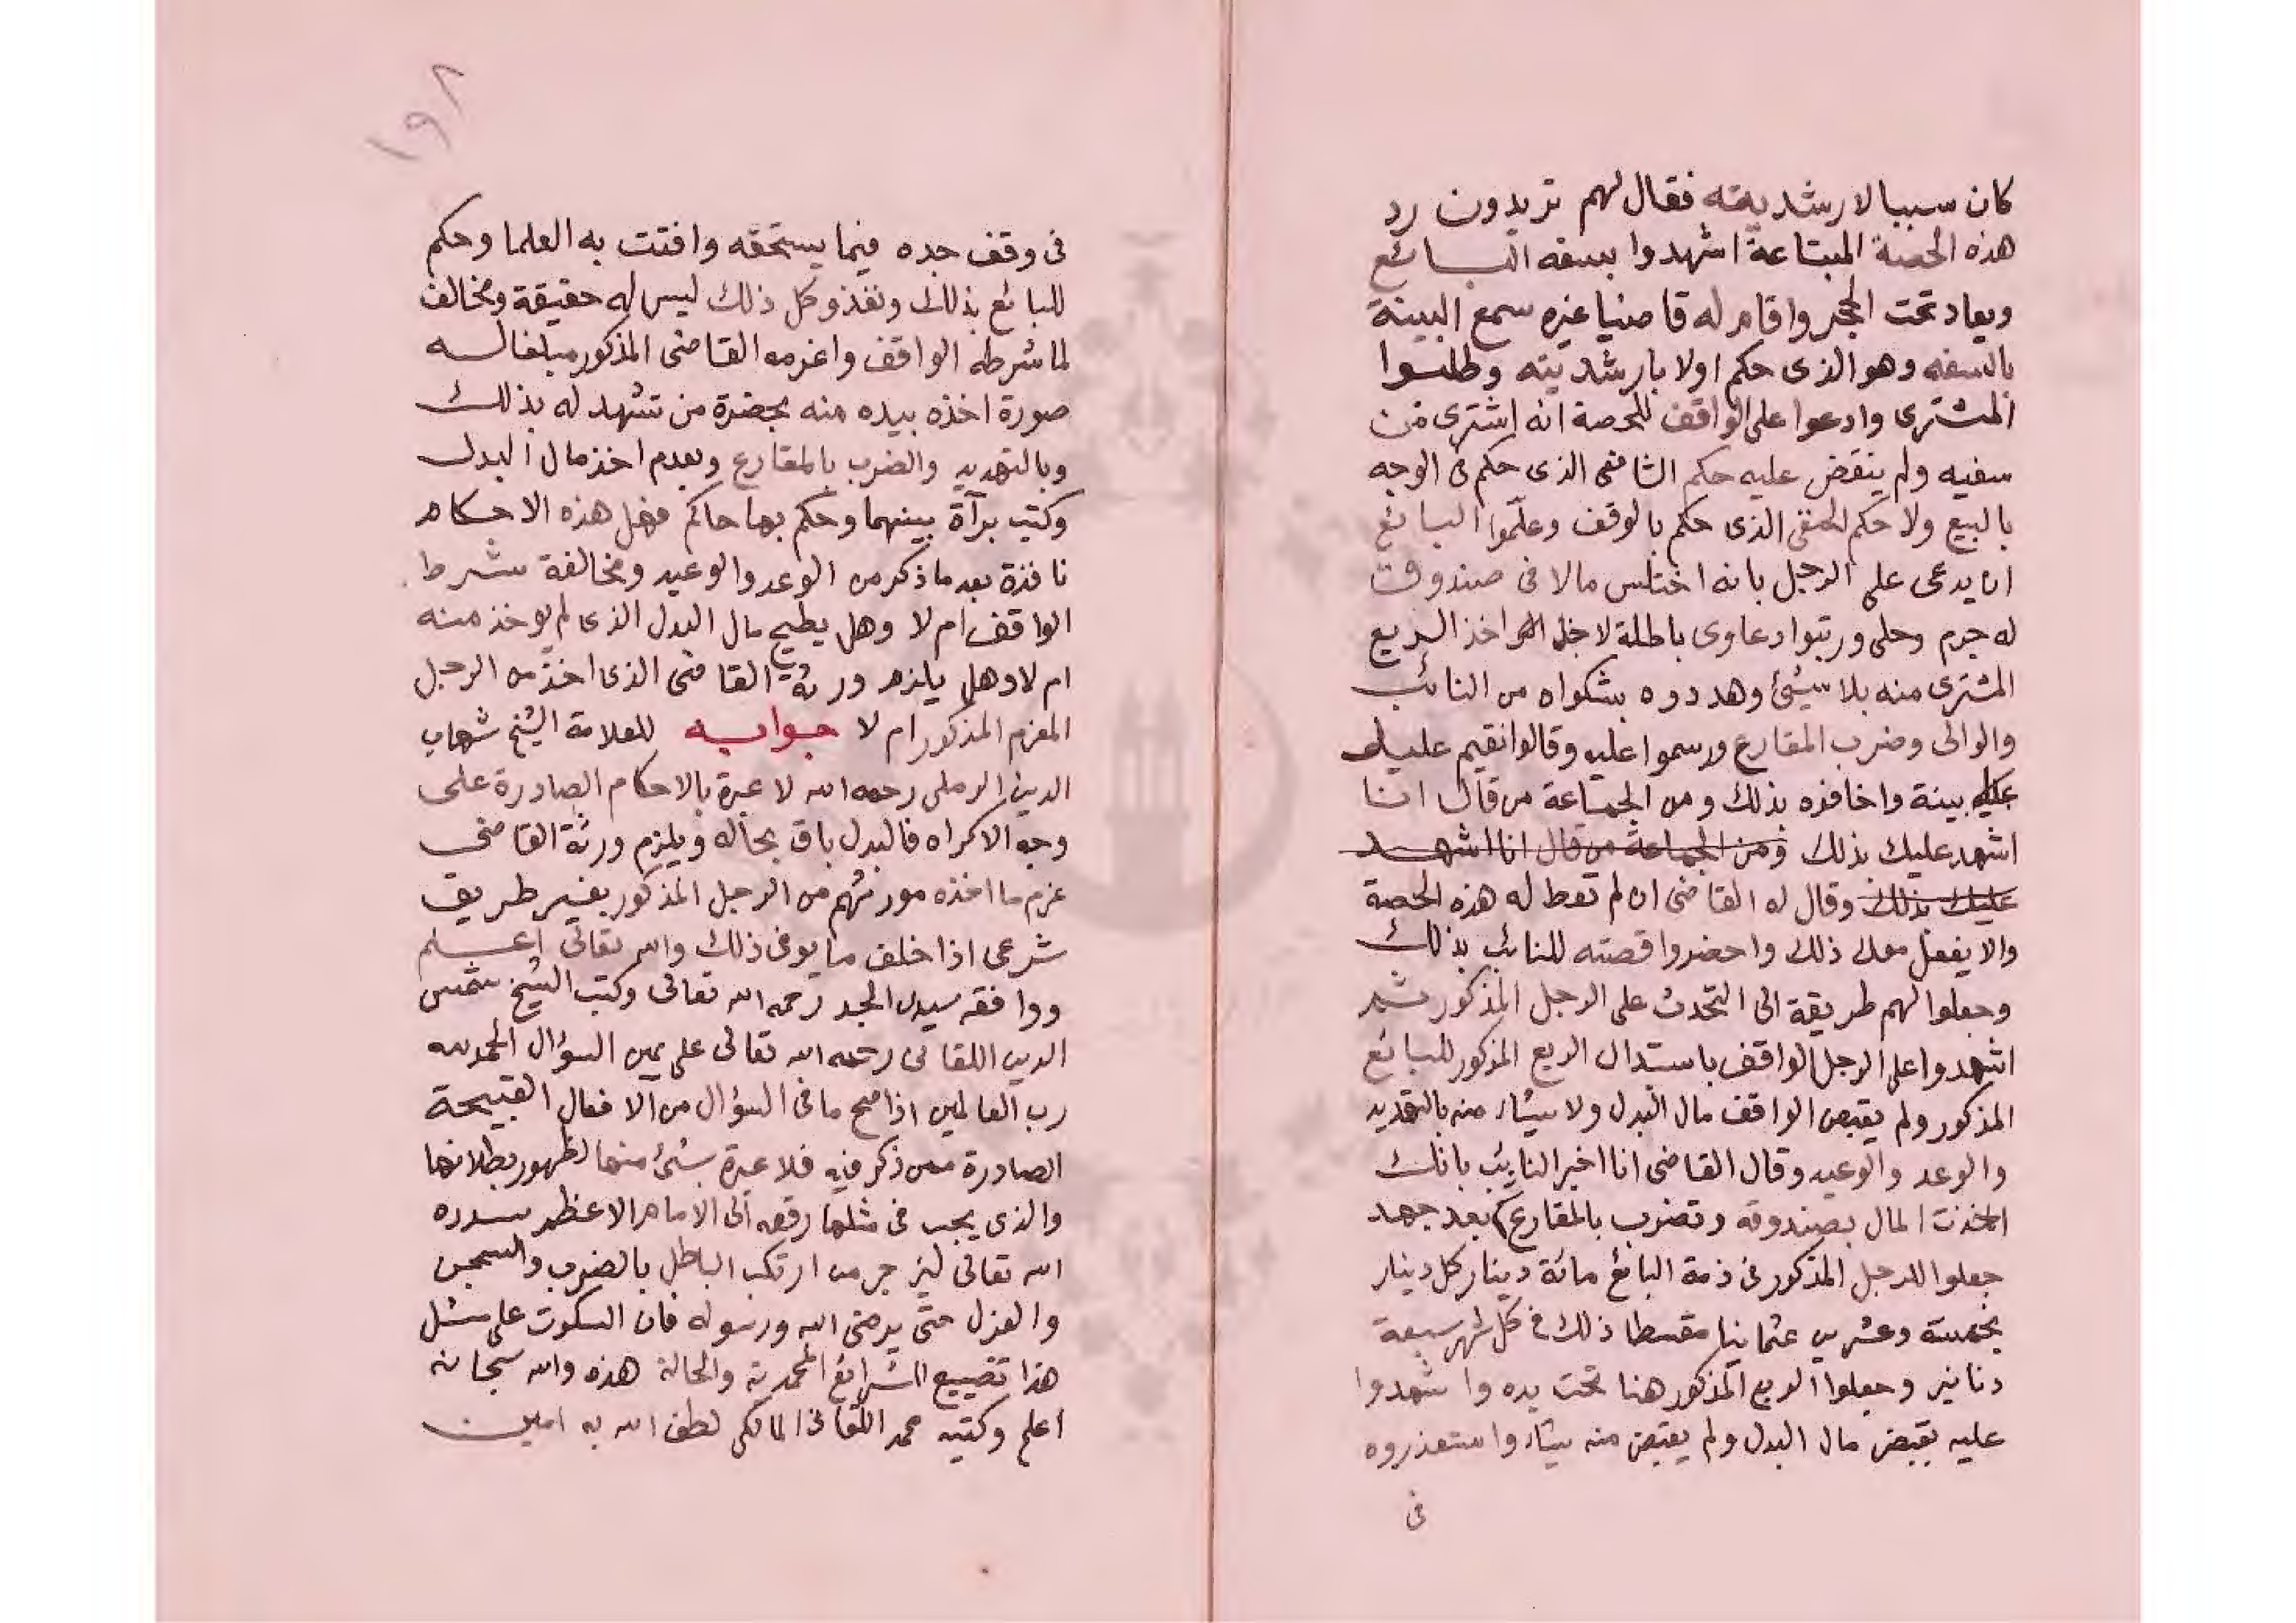 كان سببا لارشديته فقال لهم تريدون رد
هذه الحصة المبتاعة اشهدوا بسفه البائع
ويعاد تحت الحجر واقام له قاضيا غيره سمع البينة
بالسفه وهو الذى حكم اولا بارشديته وطلبوا
المشترى وادعوا على الواقف للحصة انه اشترى من
سفيه ولم ينقض عليه حكم الشافعى الذى حكم فى الوجه
بالبيع ولا حكم الحنفى الذى حكم بالوقف وعلموا البائع
ان يدعى على الرجل بانه اختلس مالا فى صندوق
له جرم وحلى ورتبوا دعاوى باطلة لاجل اخذ الريع
المشترى منه بلا شيئ وهددوه بشكواه من النائب
والوالى وضرب المقارع ورسموا عليه وقالوا نقيم عليك
عليه بينة واخافوه بذلك ومن الجماعة من قال انا
اشهد عليك بذلك ومن الجماعة من قال انا اشهد
عليك بذلك وقال له القاضى ان لم تعط له هذه الحصة
والا يفعل معك ذلك واحضروا قصته للنائب بذلك
وجعلوا لهم طريقة الى التحدث على الرجل المذكور ثم
اشهدوا على الرجل الواقف باستبدال الريع المذكور للبائع
المذكور ولم يقبض الواقف مال البدل ولا شيئا منه بالتهديد
والوعد والوعيد وقال القاضى انا اخبر النايب بانك
اخذت المال بصندوقه وتضرب بالمقارع بعد جهد
جعلوا للرجل المذكور فى ذمة البائع مائة دينار كل دينار
بخمسة وعشرين عثمانيا مقسطا ذلك فى كل شهر سبعة
دنانير وجعلوا الريع المذكور هنا تحت يده واشهدوا
عليه بقبض مال البدل ولم يقبض منه شيئا واستعذروه
فى
١٩٨
فى وقف جده فيما يستحقه وافتت به العلما وحكم
للبائع بذلك ونفذ وكل ذلك ليس له حقيقة ومخالف
لما شرطه الواقف واغرمه القاضى المذكور مبلغا له
صورة اخذه بيده منه بحضرة من تشهد له بذلك
وبالتهديد والضرب بالمقارع وبعدم اخذ مال البدل
وكتب برآة بينهما وحكم بها حاكم فهل هذه الاحكام
نافذة بعد ما ذكر من الوعد والوعيد ومخالفة شرط
الواقف ام لا وهل يطيح مال البدل الذى لم يوخذ منه
ام لا وهل يلزم ورثة القاضى الذى اخذ من الرجل
المغرم المذكور ام لا جوابه للعلامة الشيخ شهاب
الدين الرملى رحمه الله لا عبرة بالاحكام الصادرة على
وجه الاكراه فالبدل باق بحاله ويلزم ورثة القاضى
غرم ما اخذه مورثهم من الرجل المذكور بغير طريق
شرعى اذا خلف ما يوفى ذلك والله تعالى اعلم
ووافقه سيدى الجد رحمه الله تعالى وكتب الشيخ شمس
الدين اللقانى رحمه الله تعالى على يمين السؤال الحمد لله
رب العالمين اذا صح ما فى السؤال من الافعال القبيحة
الصادرة ممن ذكر فيه فلا عبرة بشئ منها لظهور بطلانها
والذى يجب فى مثلها رفعه الى الامام الاعظم سدده
الله تعالى ليزجر من ارتكب الباطل بالضرب والسجن
والعزل حتى يرضى الله ورسوله فان السكوت على مثل
هذا تضييع الشرائع المحمدية والحالة هذه والله سبحانه
اعلم وكتبه محمد اللقانى المالكى لطف الله به امين